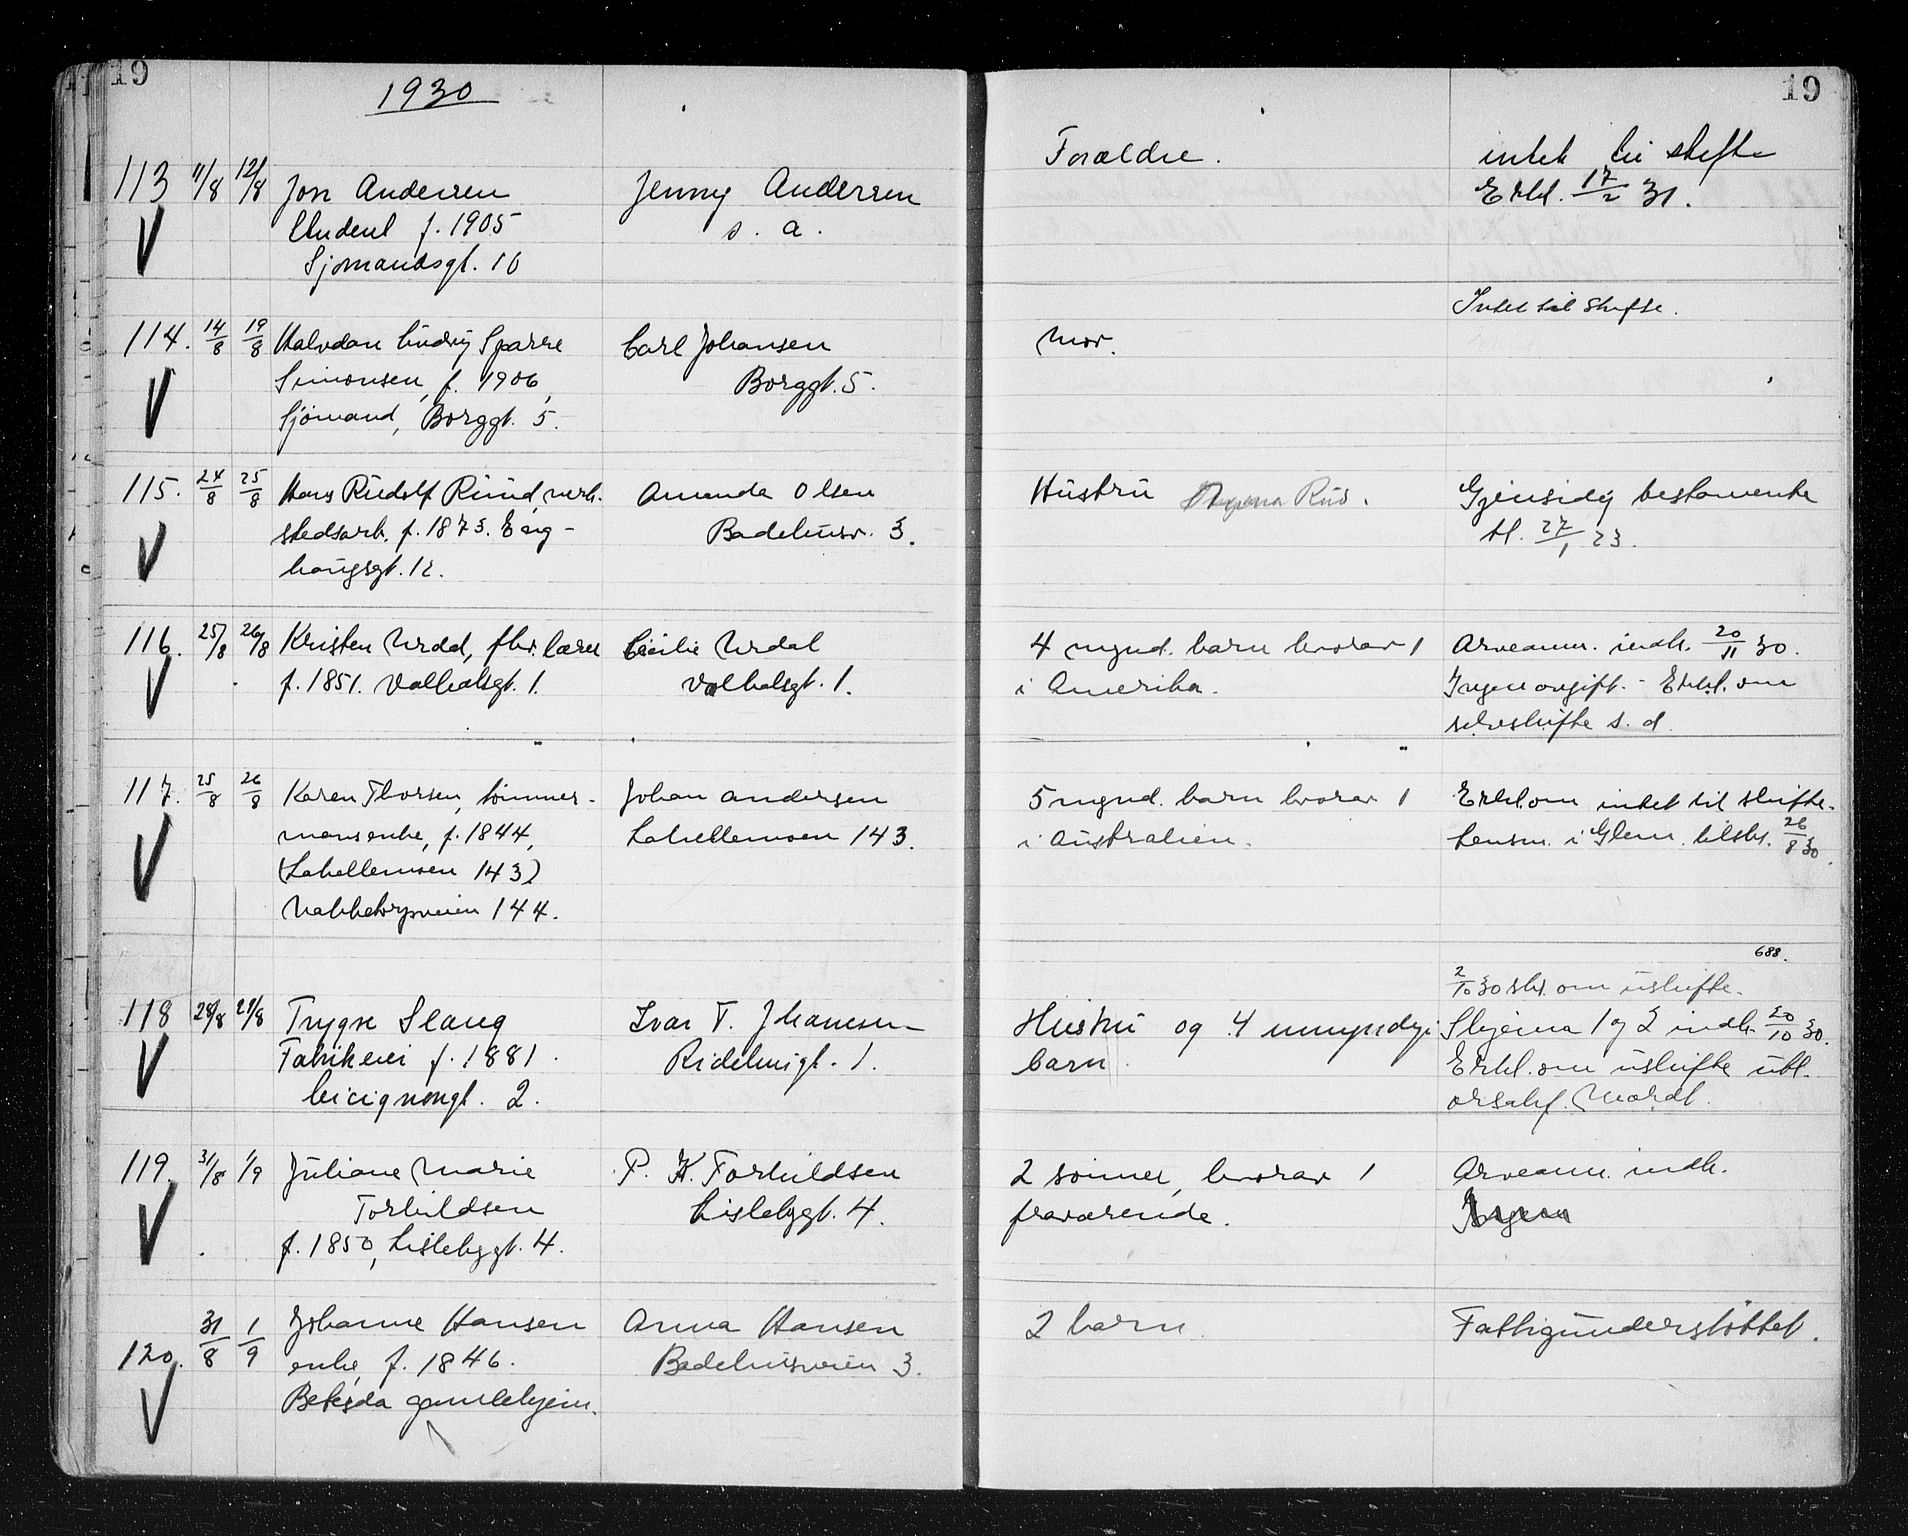 19
19
1930
113 11/8 12/8 Jon Andersen
Student f. 1905
Sjømandsgt. 10
Jenny Andersen
s. a.
Forældre.
intet til skifte
Erkl. 17/2 31.
114. 14/8 19/8 Halvdan Ludvig Sparre
Simonsen, f. 1906,
Sjömand, Borggt. 5.
Carl Johansen
Borggt. 5.
Mor.
Intet til skifte.
115. 24/8 25/8 Hans Rudolf Ruud, verk-
stedsarb. f. 1873. Eng-
haugsgt. 12.
Amanda Olsen
Badehusv. 3.
Hustru Rud.
Gjensidig testamente
tl. 27/1 23.
116. 25/8 26/8 Kristen Urdal, fhv. lærer
f. 1851. Valhalsgt. 1.
Cecilie Urdal
Valhalsgt. 1.
4 mynd. barn hvorav 1
i Amerika.
Arveanm. indk. 20/11 30.
Ingen avgift. - Erkl. om
selvskifte s. d.
117. 25/8 26/8 Karen Thorsen, tömmer-
mansenke, f. 1844,
(Lahellemoen 143)
Nabbetorpveien 144.
Johan Andersen
Lahellemoen 143.
5 mynd. barn hvorav 1
i Australien.
Erkl. om intet til skifte.
Lensm. i Glem. tilskr. 26/8 30.
118 28/8 29/8 Trygve Slang
Fabrikeier f. 1881.
Cicignongt. 2.
Ivar T. Johanesen
Ridehusgt. 1.
Hustru og 4 umyndige
barn.
688.
2/10 30 skr. om uskifte.
Skjema 1 og 2 indk. 20/10 30.
Erkl. om uskifte utl.
orsakf. Mordt.
119. 31/8 1/9 Juliane Marie
Torkildsen
f. 1850, Lislebygt. 4.
P. K. Torkildsen
Lislebygt. 4.
2 sönner, hvorav 1
fraværende.
Arveanm. indk.
Ingen
120. 31/8 1/9 Johanne Hansen
enke, f. 1846.
Betesda gamlehjem.
Anna Hansen
Badehusveien 3.
2 barn.
Fattigunderstöttet.